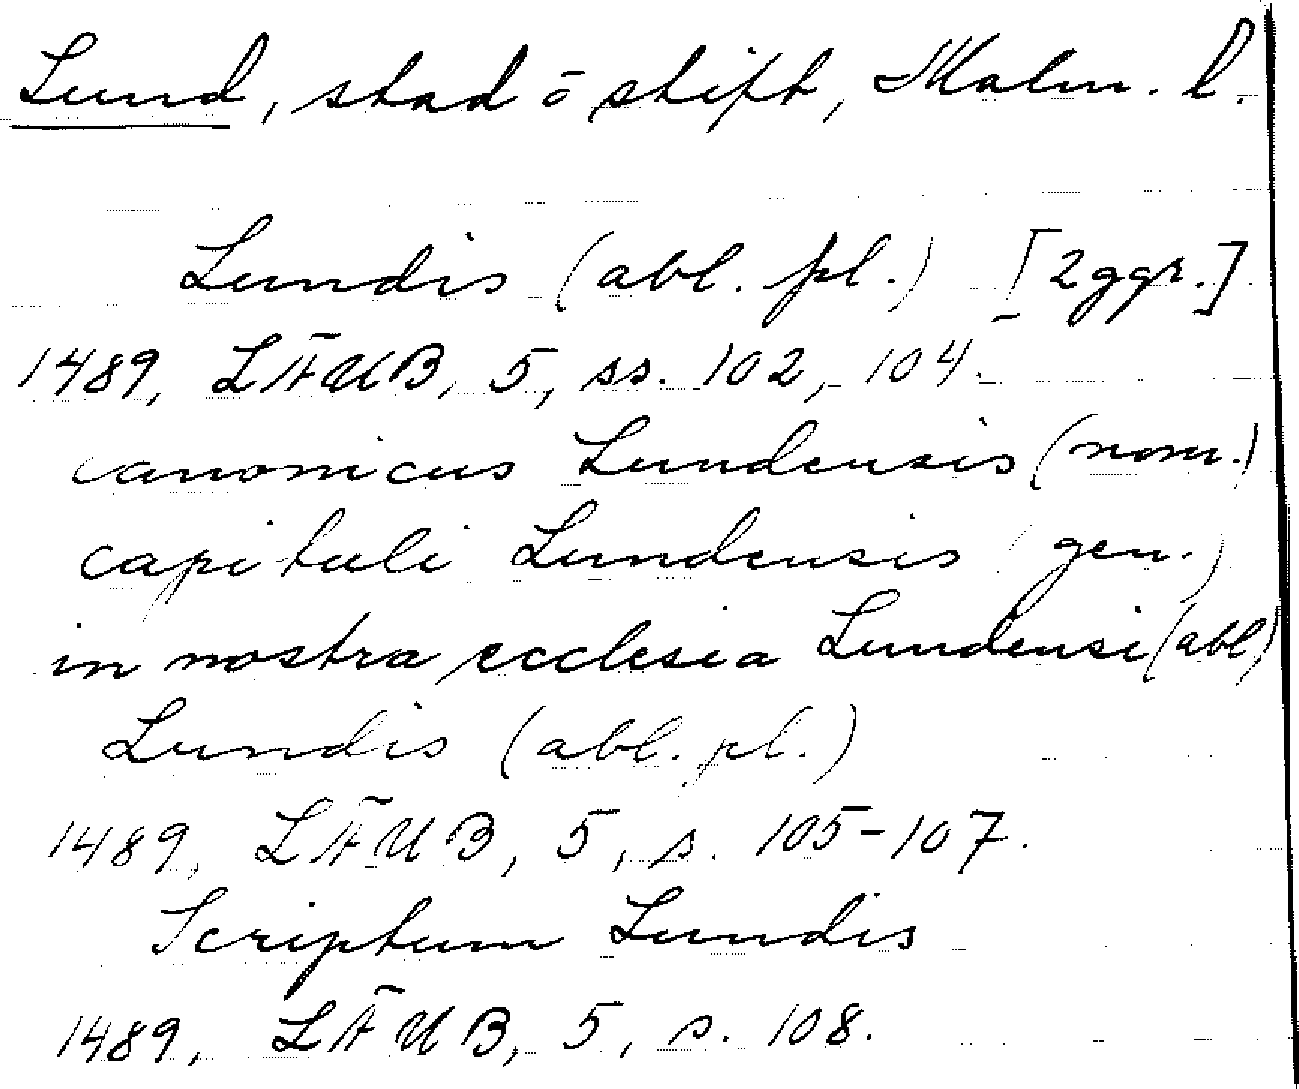 Lund, stad ō stift, Malm. l.
Lundis (abl. pl.) [2 ggr.]
1489, LÄUB, 5, ss. 102, 104.
canonicus Lundensis (nom.)
capituli Lundensis (gen.)
in nostra ecclesia Lundensi (abl.)
Lundis (abl. pl.)
1489, LÄUB, 5, s. 105-107.
Scriptum Lundis
1489, LÄUB, 5, s. 108.